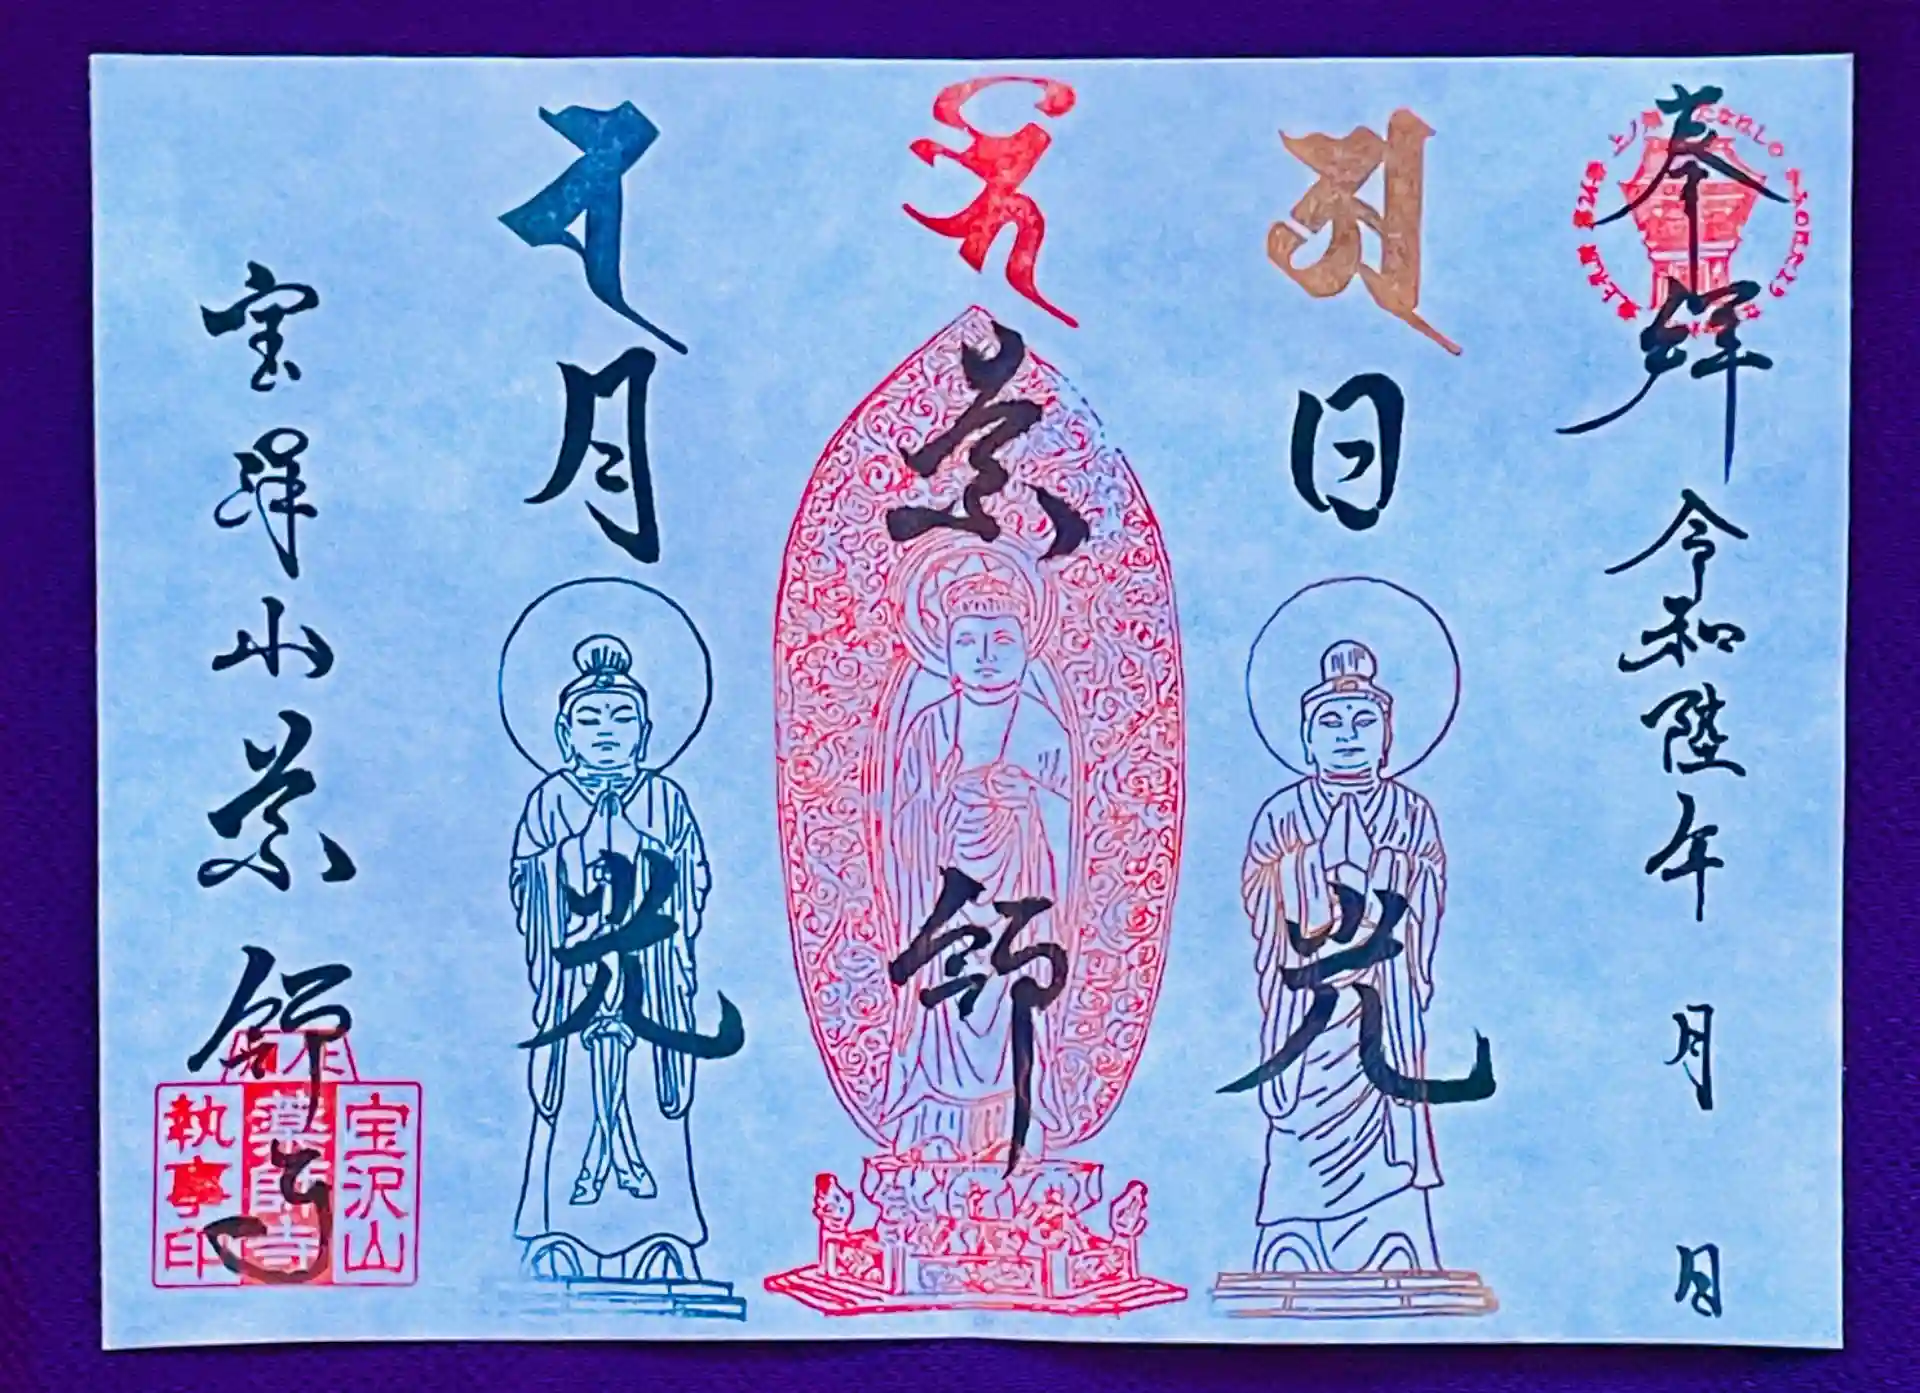 奉拝 令和陸年 月 日
日光
薬師
月光
宝澤山薬師寺
宝沢山
薬師寺
執事印